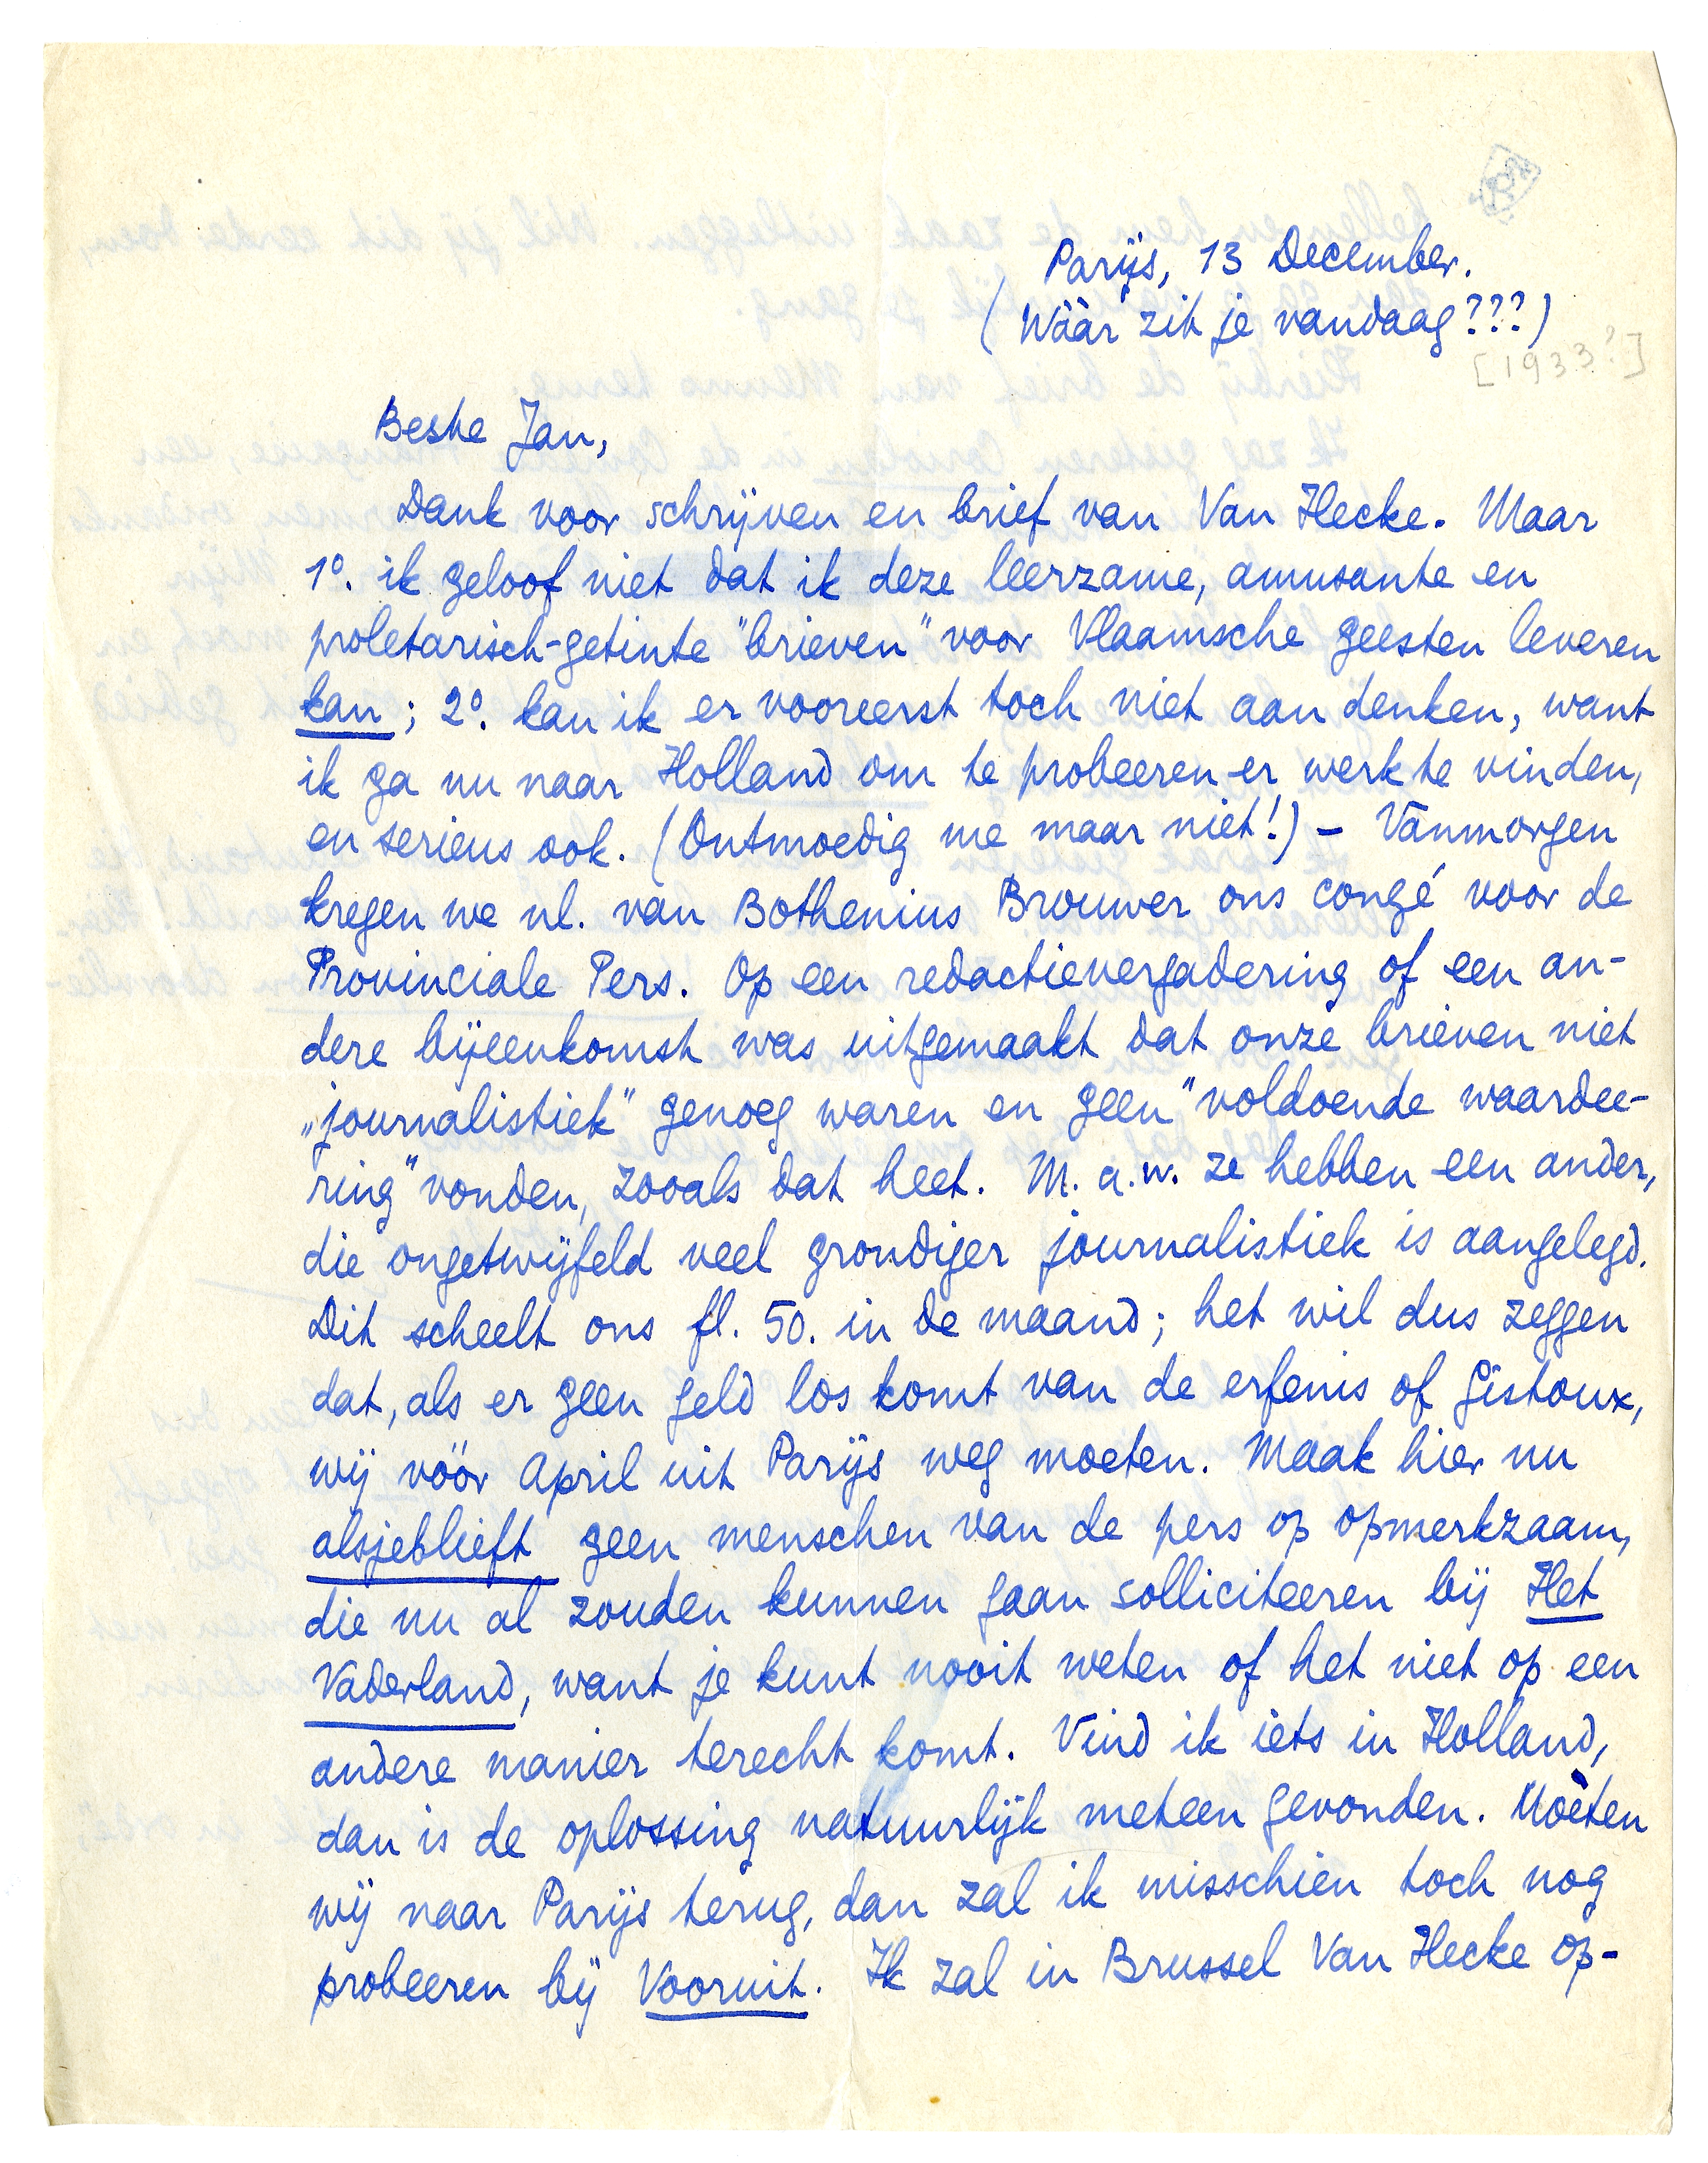 Parijs, 13 December.
(Wáár zit je vandaag???)
[1933?]
Beste Jan,
Dank voor schrijven en brief van Van Hecke. Maar
1º. ik geloof niet dat ik deze leerzame, amusante en
proletarisch-getinte "brieven" voor Vlaamsche geesten leveren
kan; 2º. kan ik er vooreerst toch niet aan denken, want
ik ga nu naar Holland om te probeeren er werk te vinden,
en serieus ook. (Ontmoedig me maar niet!) – Vanmorgen
kregen we nl. van Bothenius Brouwer ons congé voor de
Provinciale Pers. Op een redactievergadering of een an-
dere bijeenkomst was uitgemaakt dat onze brieven niet
„journalistiek" genoeg waren en geen "voldoende waardee-
ring" vonden, zooals dat heet. M.a.w. ze hebben een ander,
die ongetwijfeld veel grondiger journalistiek is aangelegd.
Dit scheelt ons fl. 50. in de maand; het wil dus zeggen
dat, als er geen geld los komt van de erfenis of Gistoux,
wij vóór April uit Parijs weg moeten. Maak hier nu
alsjeblieft geen menschen van de pers op opmerkzaam,
die nu al zouden kunnen gaan solliciteeren bij Het
Vaderland, want je kunt nooit weten of het niet op een
andere manier terecht komt. Vind ik iets in Holland,
dan is de oplossing natuurlijk meteen gevonden. Moèten
wij naar Parijs terug, dan zal ik misschien toch nog
probeeren bij Vooruit. Ik zal in Brussel Van Hecke op-